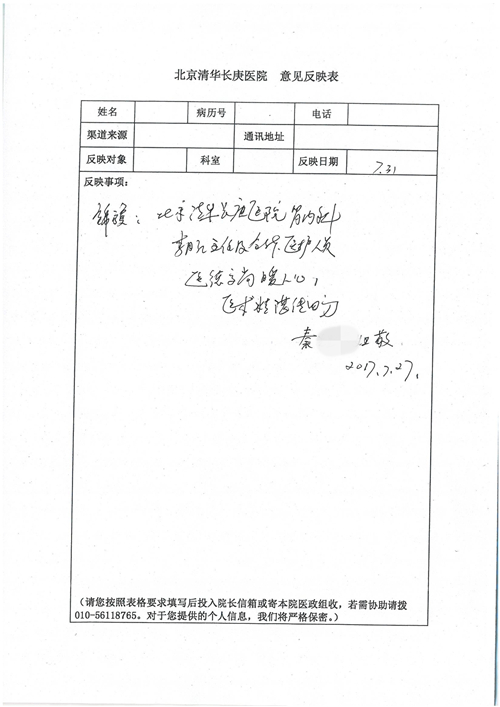 北京清华长庚医院 意见反映表
姓名 病历号 电话
渠道来源 通讯地址
反映对象 科室 反映日期 7.31
反映事项：
锦旗：北京清华长庚医院肾内科
主任及全体医护人员
医德高尚暖人心，
医术精湛传四方
秦 敬
2017.7.27.
（请您按照表格要求填写后投入院长信箱或寄本院医政组收，若需协助请拨
010-56118765。对于您提供的个人信息，我们将严格保密。）